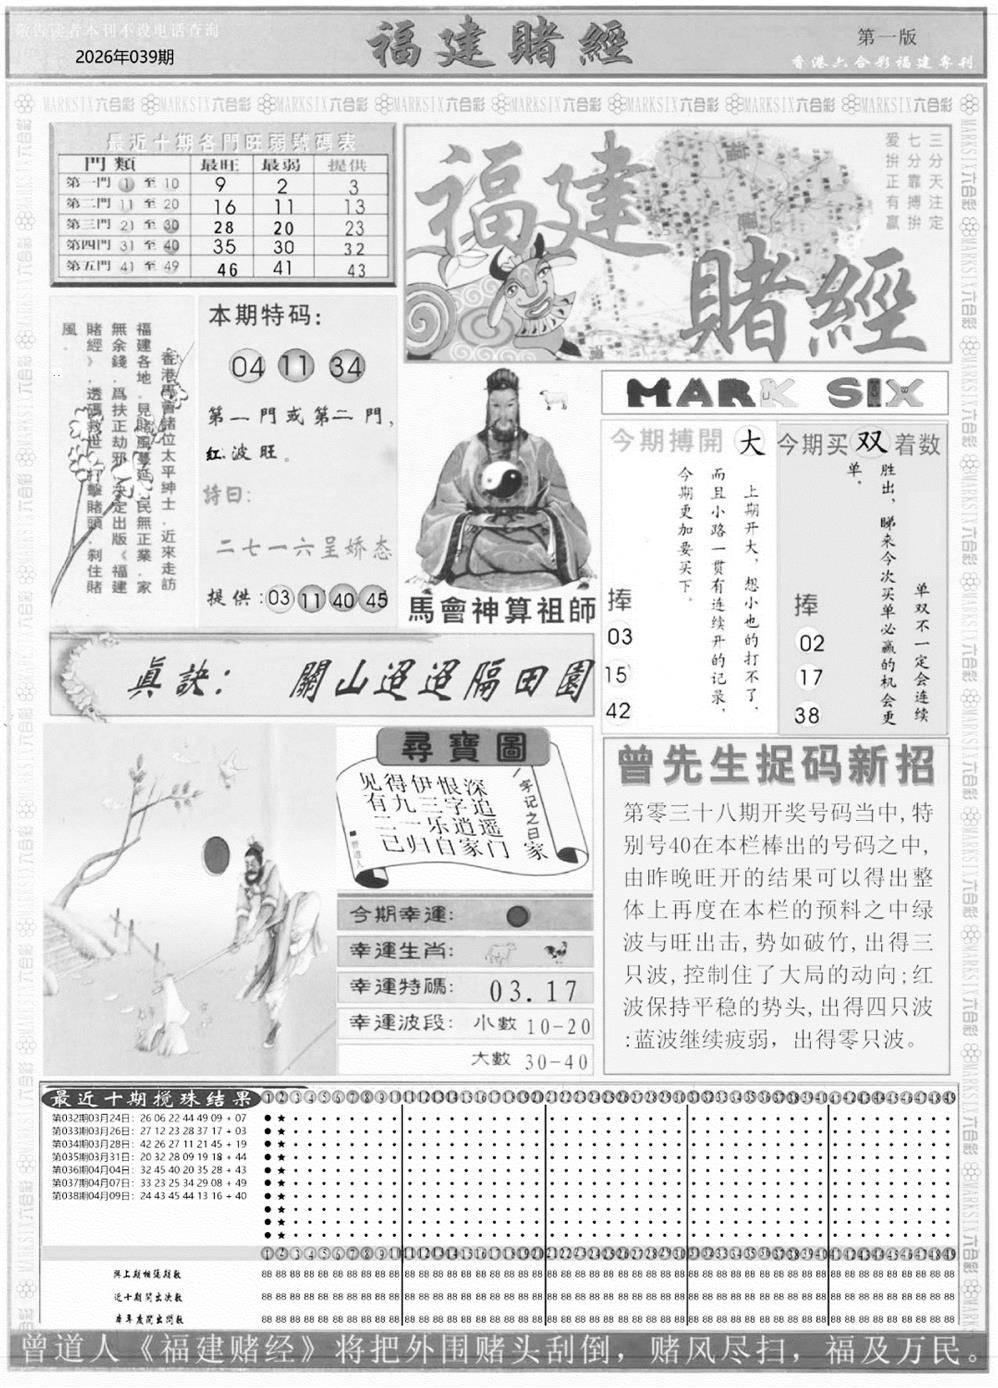 敬告读者本刊不设电话查询
2026年039期
福建賭經
第一版
香港六合彩福建專刊
MARKSIX六合彩 MARKSIX六合彩 MARKSIX六合彩 MARKSIX六合彩 MARKSIX六合彩 MARKSIX六合彩 MARKSIX六合彩 MARKSIX六合彩
最近十期各門旺弱號碼表
門類 最旺 最弱 提供
第一門 1 至 10 9 2 3
第二門 11 至 20 16 11 13
第三門 21 至 30 28 20 23
第四門 31 至 40 35 30 32
第五門 41 至 49 46 41 43
福建
賭經
三分天注定
七分靠搏拚
爱拚正有赢
香港馬會諸位太平紳士.近來走訪
福建各地.見賭風蔓延.民無正業.家
無余錢.爲扶正劫邪.决定出版《福建
賭經》.透碼救世.打擊賭頭.刹住賭
風.
本期特码:
04 11 34
第一門或第二門,
红波旺。
詩曰:
二七一六呈娇态
提供:03 11 40 45
馬會神算祖師
MARK SIX
今期搏開 大
上期开大，想小也的打不了，
而且小路一贯有连续开的记录，
今期更加要买下。
捧
03
15
42
今期买 双 着数
单双不一定会连续
胜出，睇来今次买单必赢的机会更
单。
捧
02
17
38
真訣: 關山迢迢隔田園
尋寶圖
见得伊恨深
有九三字追
二一乐逍遥
己归自家门
一字记之曰 家
■曾道人
今期幸運:
幸運生肖:
幸運特碼: 03.17
幸運波段: 小數 10-20
大數 30-40
曾先生捉码新招
第零三十八期开奖号码当中,特
别号40在本栏棒出的号码之中,
由昨晚旺开的结果可以得出整
体上再度在本栏的预料之中绿
波与旺出击,势如破竹,出得三
只波,控制住了大局的动向;红
波保持平稳的势头,出得四只波
:蓝波继续疲弱，出得零只波。
最近十期搅珠结果
第032期03月24日: 26 06 22 44 49 09 + 07
第033期03月26日: 27 12 23 28 37 17 + 03
第034期03月28日: 42 26 27 11 21 45 + 19
第035期03月31日: 20 32 28 09 19 18 + 44
第036期04月04日: 32 45 40 20 35 28 + 43
第037期04月07日: 33 23 25 34 29 08 + 49
第038期04月09日: 24 43 45 44 13 16 + 40
與上期相隔期数
近十期開出次数
本年度開出期数
曾道人《福建赌经》将把外围赌头刮倒，赌风尽扫，福及万民。